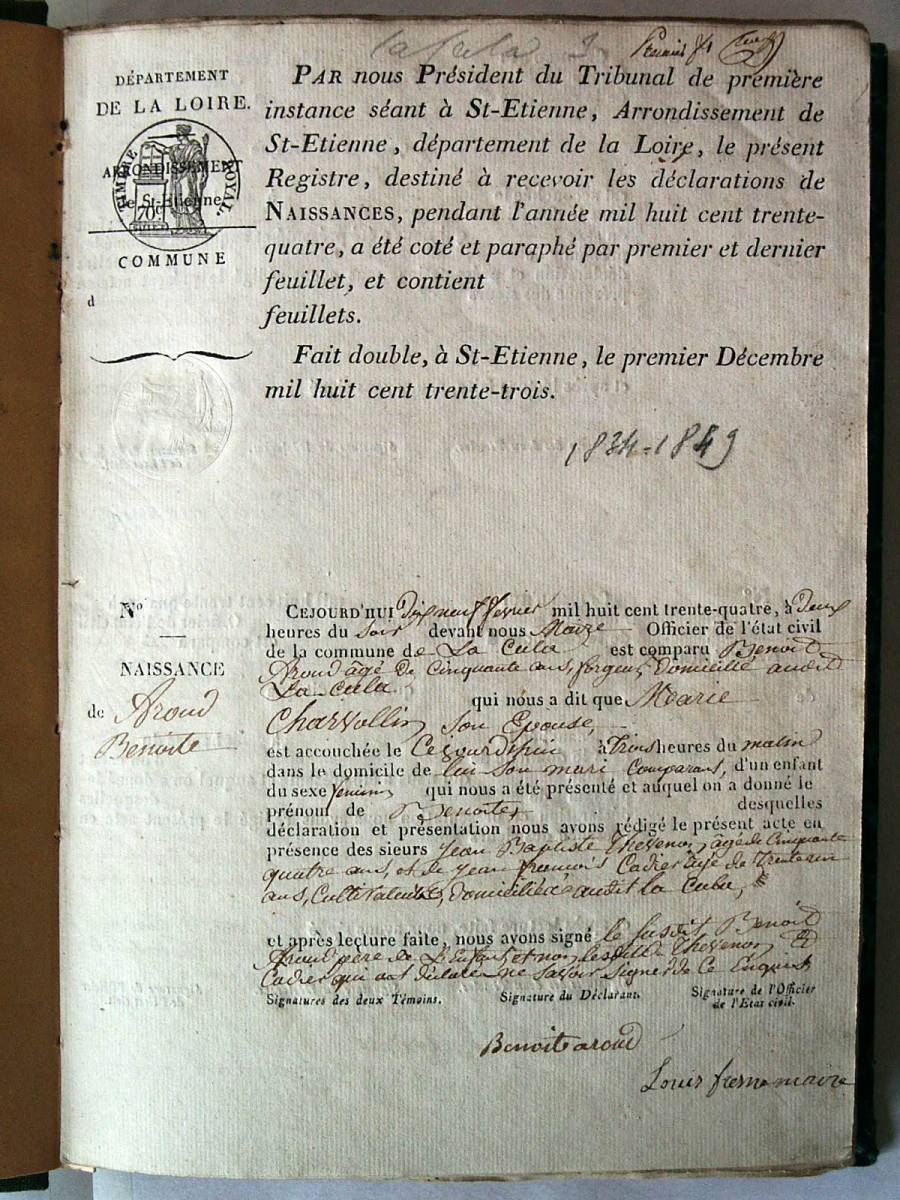 la Cula
DÉPARTEMENT
DE LA LOIRE.
TIMBRE ROYAL
70c
ARRONDISSEMENT
de St-Etienne
COMMUNE
d
PAR nous Président du Tribunal de première
instance séant à St-Etienne, Arrondissement de
St-Etienne, département de la Loire, le présent
Registre, destiné à recevoir les déclarations de
NAISSANCES, pendant l'année mil huit cent trente-
quatre, a été coté et paraphé par premier et dernier
feuillet, et contient
feuillets.
Fait double, à St-Etienne, le premier Décembre
mil huit cent trente-trois.
1834-1849
N°
NAISSANCE
de Aroud
Benoite
CEJOURD'HUI Dixneuf fevrier mil huit cent trente-quatre, à Deux
heures du Soir devant nous Maire Officier de l'état civil
de la commune de La Cula est comparu Benoit
Aroud âgé de Cinquante ans, forgeur, Domicilié audit
La-cula qui nous a dit que Marie
Charvollin Son Epouse,
est accouchée le Cejourdhui à Trois heures du matin
dans le domicile de lui son mari Comparant, d'un enfant
du sexe feminin qui nous a été présenté et auquel on a donné le
prénom de Benoite desquelles
déclaration et présentation nous avons rédigé le présent acte en
présence des sieurs Jean Baptiste Thevenon, âgé de Cinquante
quatre ans, et de Jean François Cadier âgé de trente un
ans, Cultivateurs, Domiciliés audit la Cula,
et après lecture faite, nous avons signé le susdit Benoit
Aroud père de L'Enfant et non lesdits Thevenon &
Cadier qui ont déclaré ne savoir signer de Ce Enquis
Signatures des deux Témoins. Signature du Déclarant. Signature de l'Officier
de l'Etat civil.
Benoite aroud
Louis fresne maire